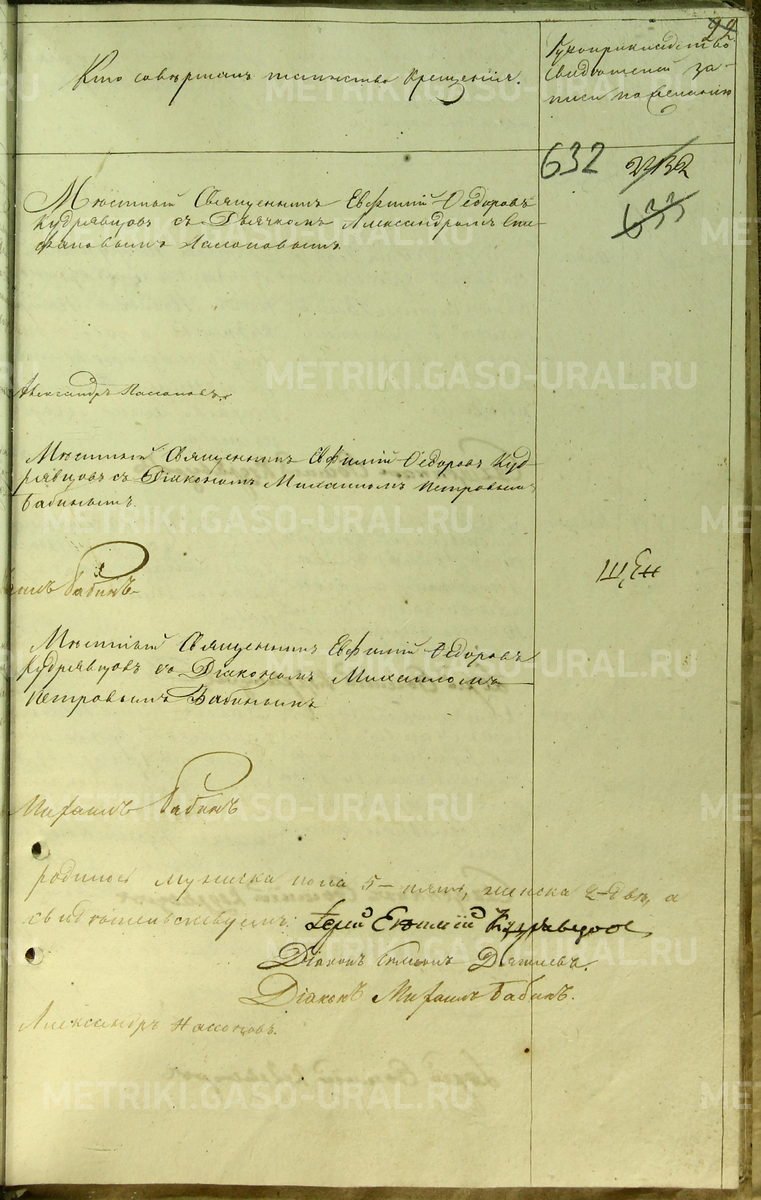 22
Кто совершалъ таинство Крещенія.
Рукоприкладство
свидѣтелей за-
писи по желанію
632 2132
633
Мѣстный Священникъ Евфимій Ѳедоровъ
Кудрявцовъ съ Дьячкомъ Александромъ Сте-
фановымъ Насоновымъ
Александръ Насоновъ.
Мѣстный Священникъ Евфимій Ѳедоровъ Куд-
рявцовъ съ Діакономъ Михаиломъ Петровымъ
Бабинымъ.
Бабинъ
Мѣстный Священникъ Евфимій Ѳедоровъ
Кудрявцовъ со Діакономъ Михаиломъ
Петровымъ Бабинымъ
Михаилъ Бабинъ
родилось мужеска пола 5-пять, женска 2-двѣ, а
свидѣтельствуемъ: Іерей Евѳимій Кудрявцовъ
Діаконъ
Діаконъ Михаилъ Бабинъ.
Александръ Насоновъ.
METRIKI.GASO-URAL.RU